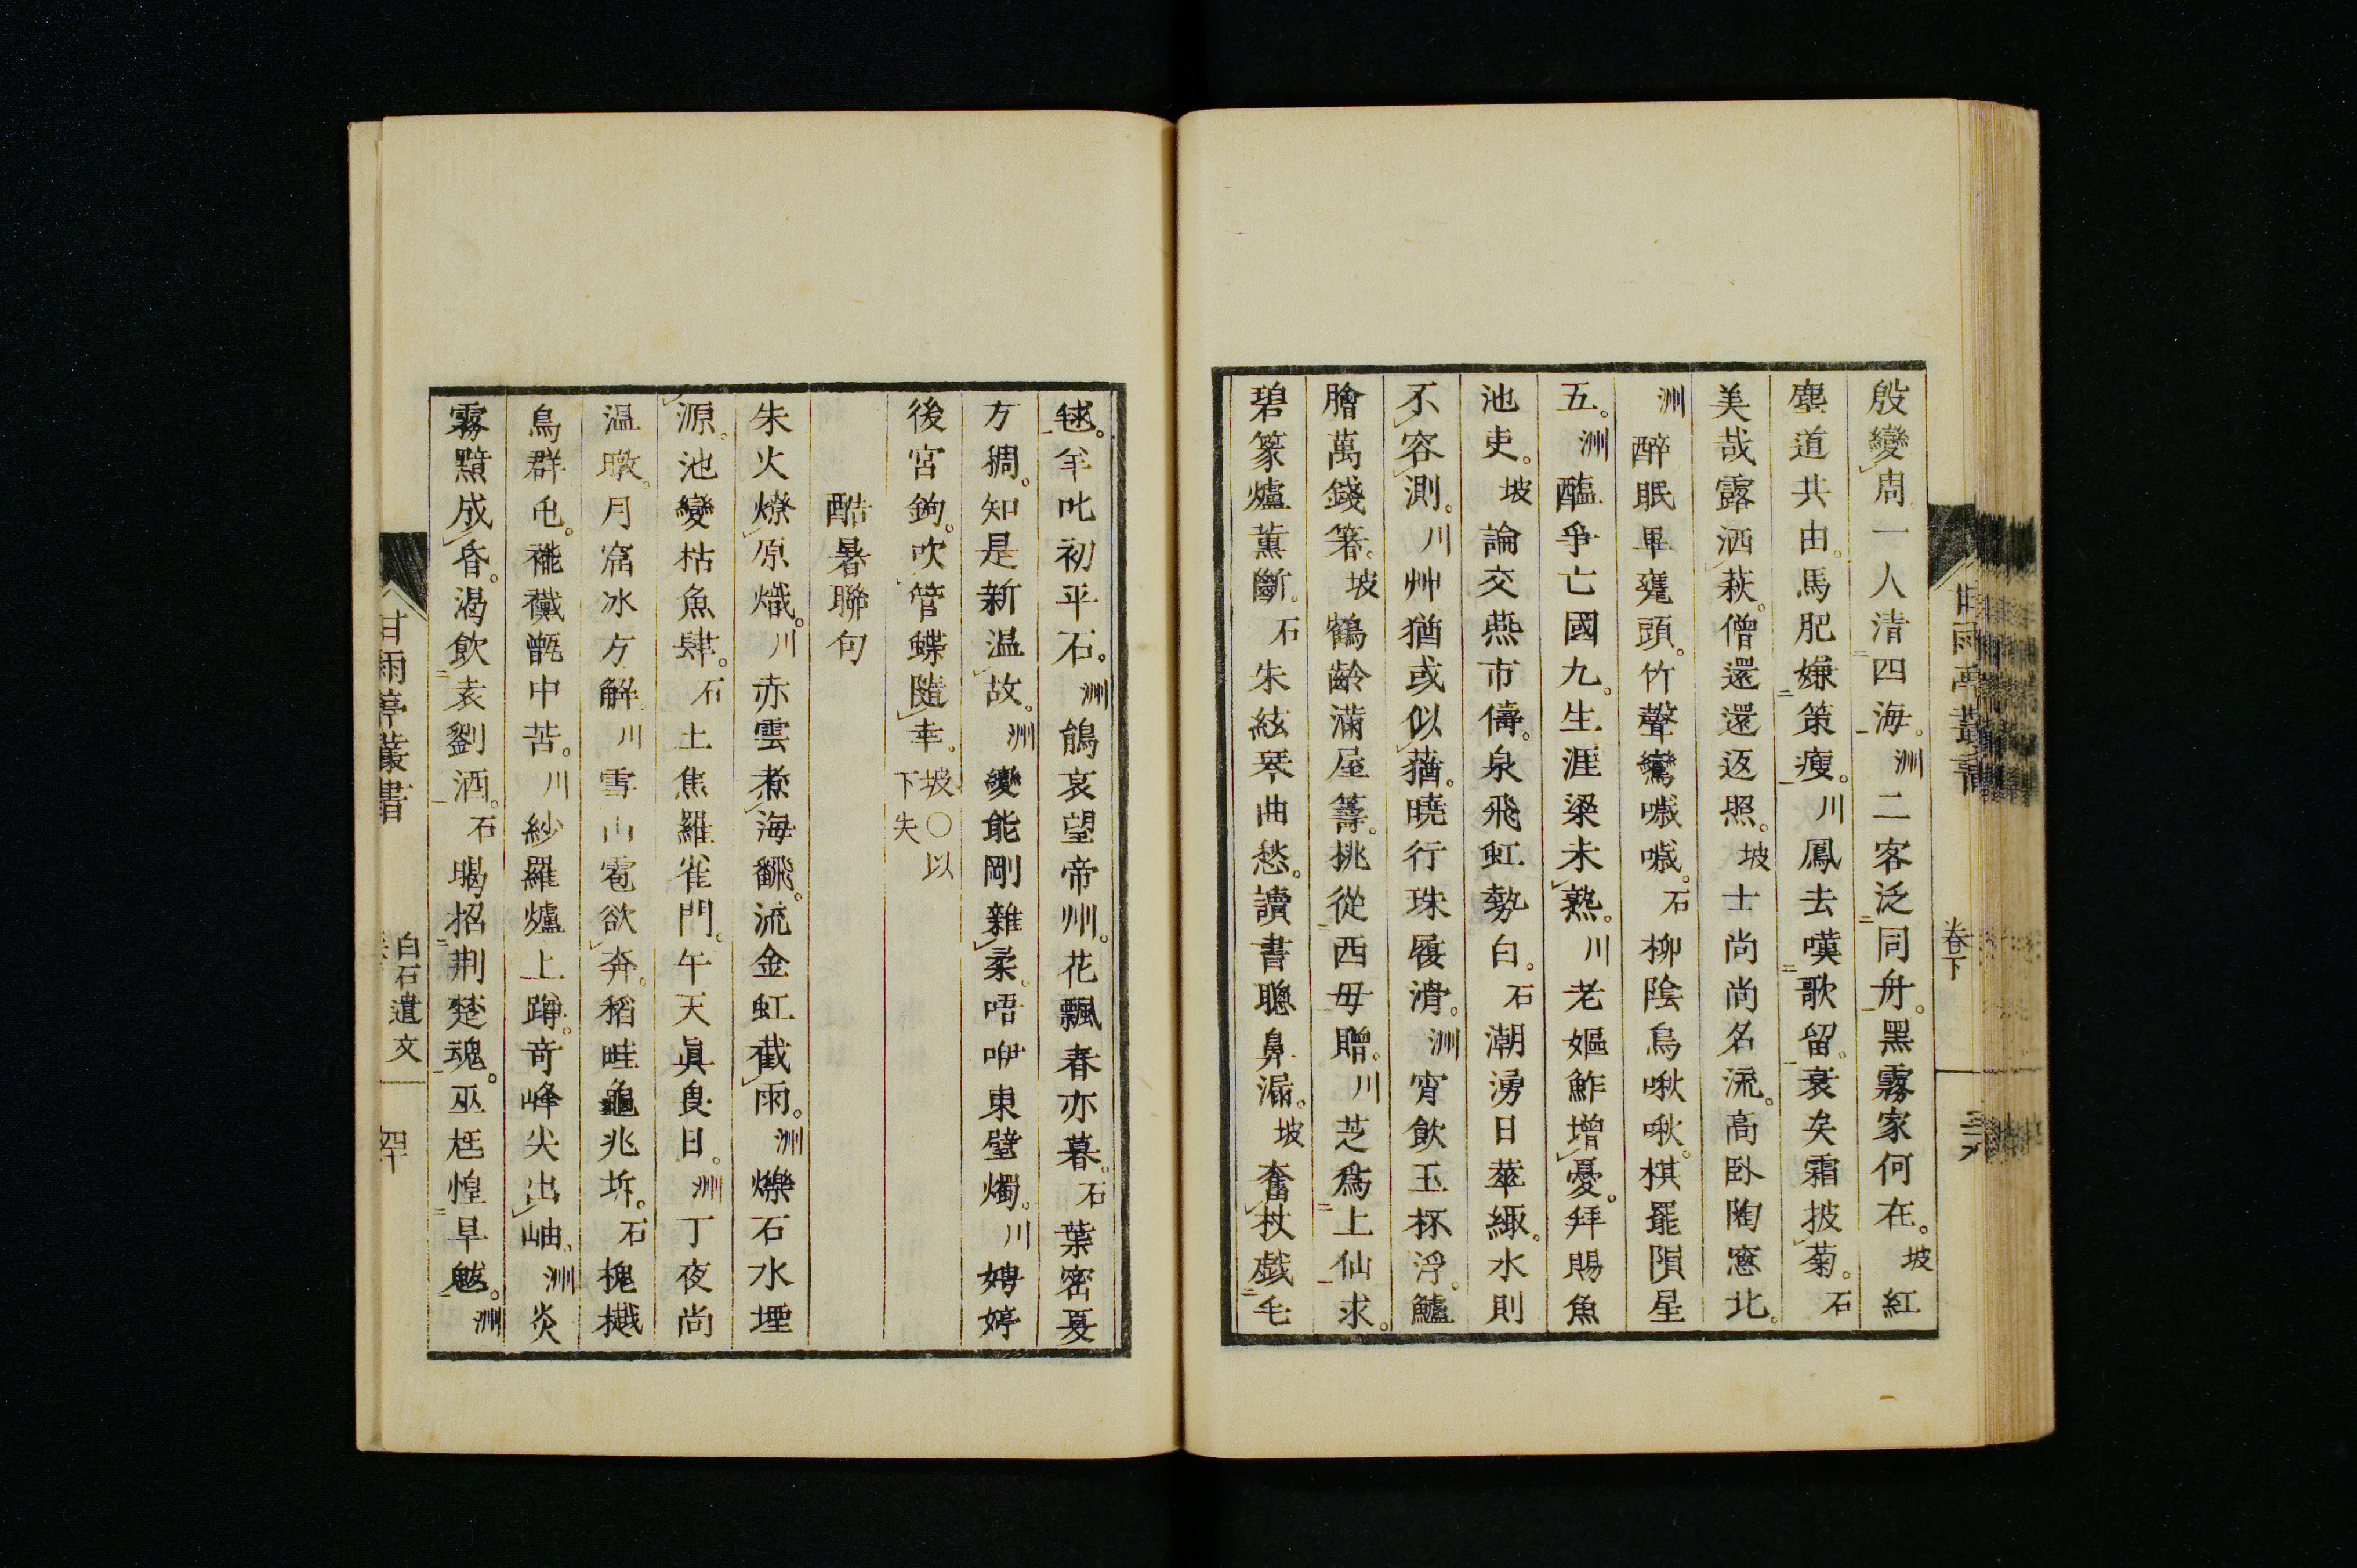 殷變周一人清四海。洲二客泛同舟。黑霧家何在。坡紅
塵道共由。馬肥嫌策瘦。川鳳去嘆歌留。衰矣霜披菊。石
美哉露洒萩。僧還還返照。坡士尚尚名流。高臥陶窻北。
洲醉眠畢甕頭。竹聲鸞噦噦。石柳陰鳥啾啾。棋罷隕星
五。洲醢爭亡國九。生涯粱未熟。川老嫗鮓增憂。拜賜魚
池吏。坡論交燕市儔。泉飛虹勢白。石潮湧日華緅。水則
不容測。川艸猶或似蕕。曉行珠履滑。洲宵飲玉杯浮。鱸
膾萬錢箸。坡鶴齡滿屋籌。挑從西毋贈。川芝爲上仙求。
碧篆爐薰斷。石朱絃琴曲愁。讀書聰鼻漏。坡奮杖戲毛
卷下
毬。羊叱初平石。洲鵑哀望帝州。花飄春亦暮。石葉密夏
方稠。知是新温故。洲變能剛雜柔。唔咿東壁燭。川娉婷
後宮鉤。吹管蝶隨幸。坡〇以下失
酷暑聯句
朱火燎原熾。川赤雲煮海飜。流金虹截雨。洲爍石水堙
源。池變枯魚肆。石土焦羅雀門。午天眞畏日。洲丁夜尚
温暾。月窟冰方解。川雪山雹欲奔。稻畦龜兆坼。石槐樾
鳥群屯。褦襶甑中苦。川紗羅爐上蹲。奇峰尖出岫。洲炎
霧黯成昏。渴飲袁劉酒。石暍招荆楚魂。巫尪惶旱魃。洲
甘雨亭叢書
白石遺文
四十